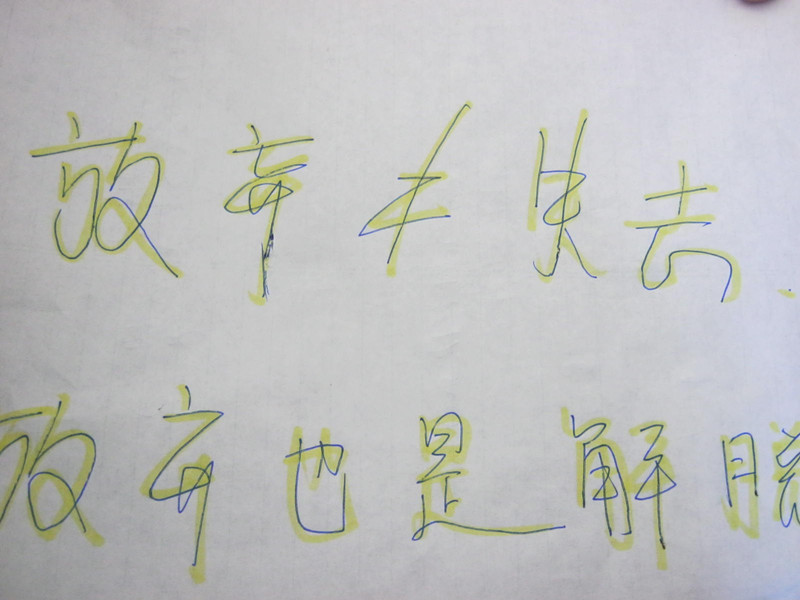 放弃≠失去.
放弃也是解脱